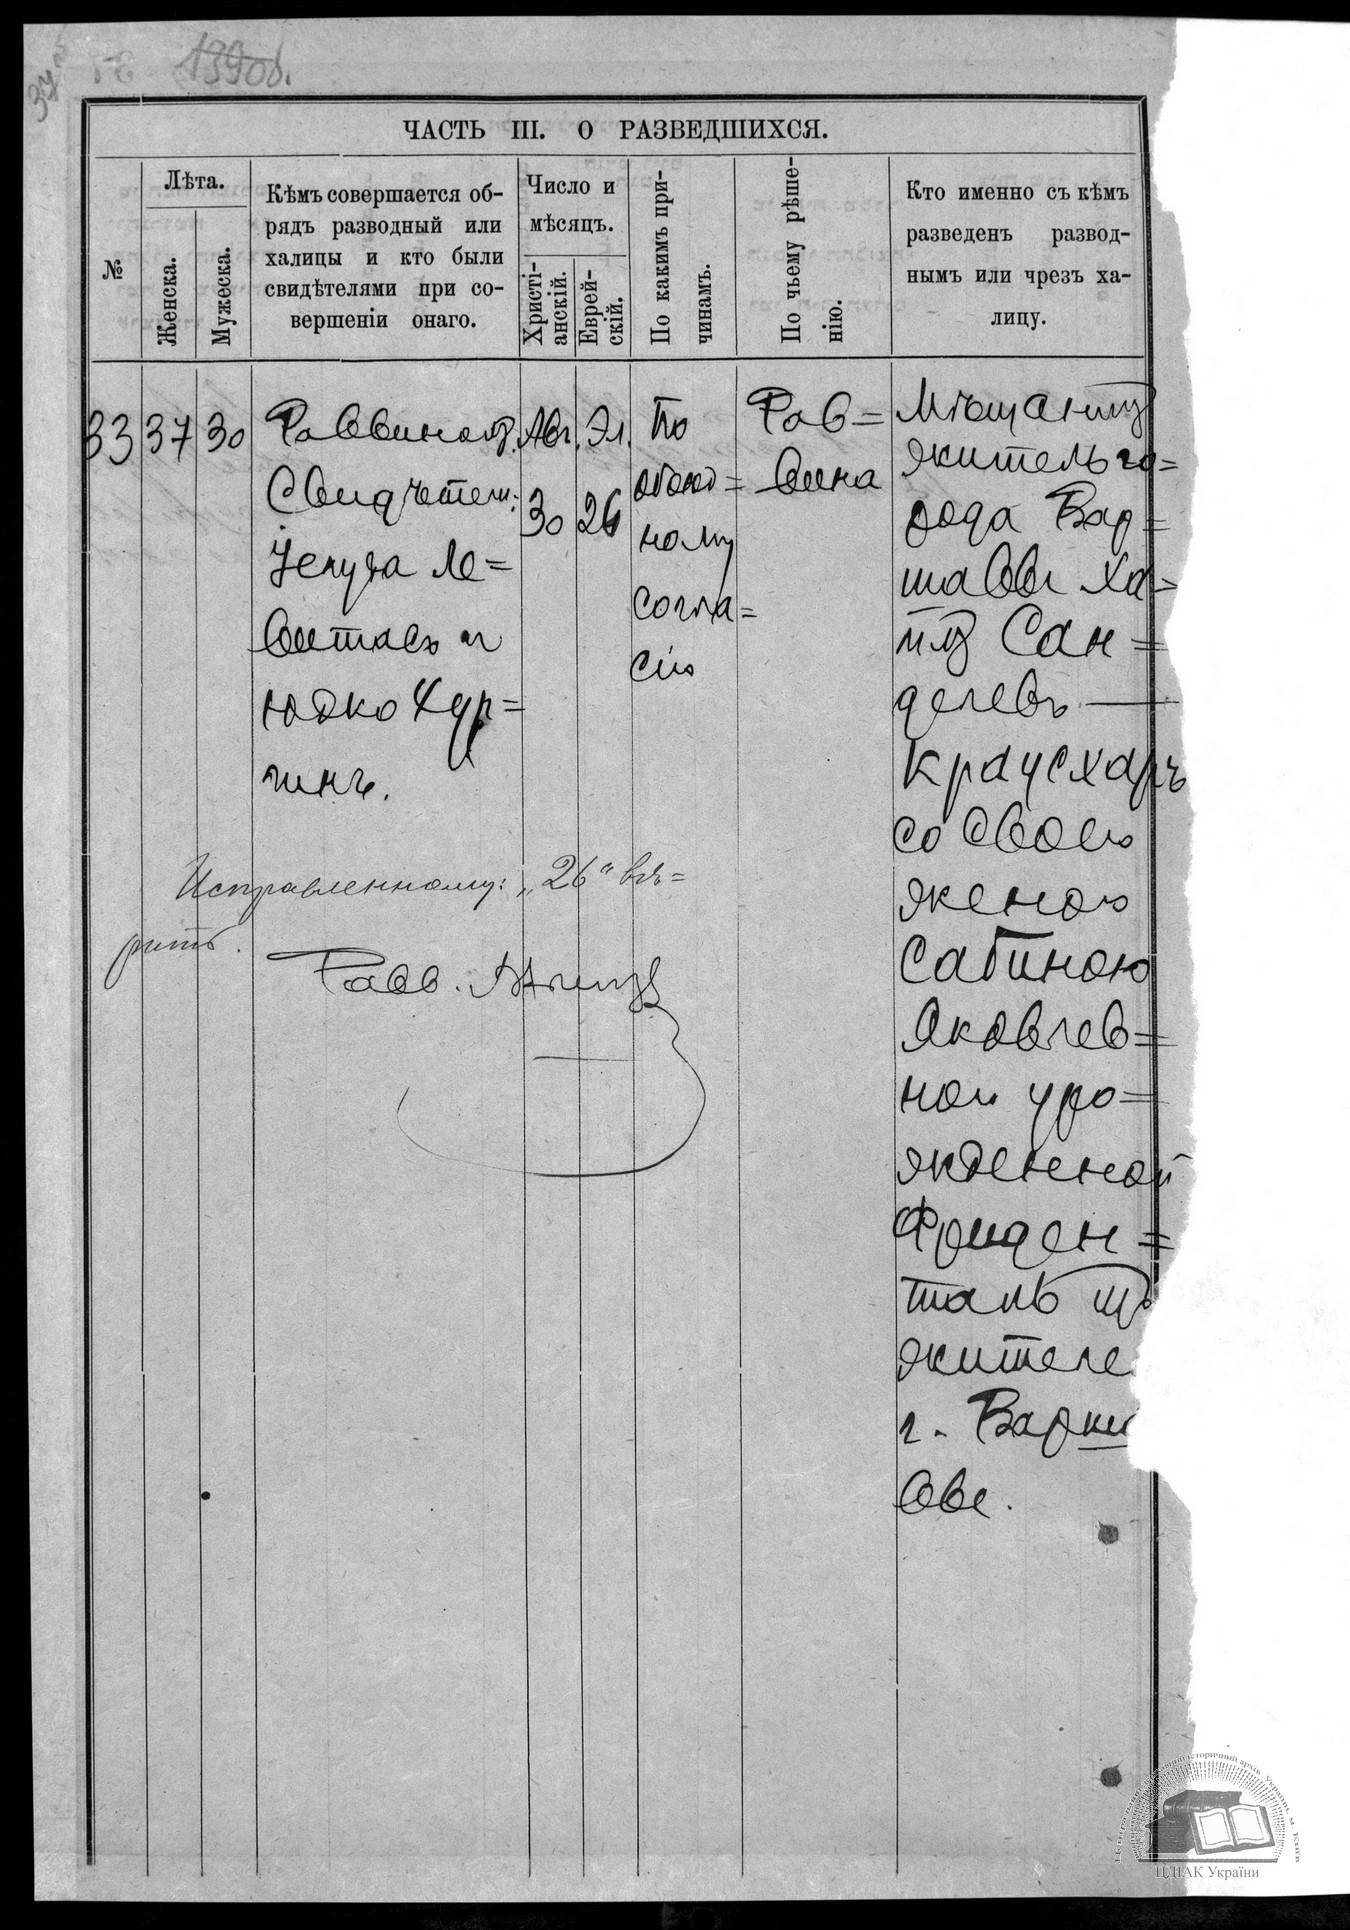 37
1390б.
ЧАСТЬ III. О РАЗВЕДШИХСЯ.
№
Лѣта.
Женска.
Мужеска.
Кѣмъ совершается об-
рядъ разводный или
халицы и кто были
свидѣтелями при со-
вершеніи онаго.
Число и
мѣсяцъ.
Христі-
анскій.
Еврей-
скій.
По какимъ при-
чинамъ.
По чьему рѣше-
нію.
Кто именно съ кѣмъ
разведенъ развод-
нымъ или чрезъ ха-
лицу.
33
37
30
Раввиномъ.
Свидѣтели:
Ле=
витасъ и
Юдко Хур=
гинъ.
Авг.
30
Эл.
26
По
обоюд=
ному
согла=
сію
Рав=
вина
Мѣщанинъ
житель го=
рода Вар=
шавы Ха=
имъ Сан=
делевъ —
Краусхаръ
со своею
женою
Сабиною
Яковлев=
ной уро=
жденной
Фриден=
таль
жителе
г. Варш
авы.
Исправленному: „26“ вѣ=
рить.
Равв.
ЦДІАК України